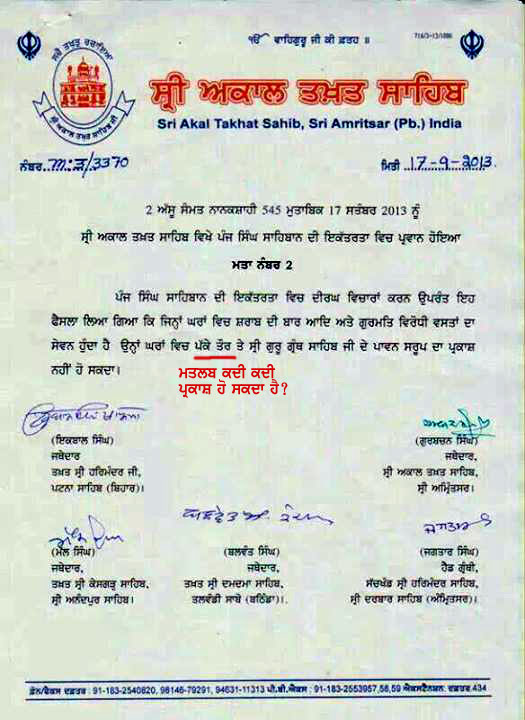 ੴ ਵਾਹਿਗੁਰੂ ਜੀ ਕੀ ਫ਼ਤਹ ॥
ਸ੍ਰੀ ਅਕਾਲ ਤਖ਼ਤ ਸਾਹਿਬ
Sri Akal Takhat Sahib, Sri Amritsar (Pb.) India
ਨੰਬਰ. 3370
ਮਿਤੀ 17-9-2013.
2 ਅੱਸੂ ਸੰਮਤ ਨਾਨਕਸ਼ਾਹੀ 545 ਮੁਤਾਬਿਕ 17 ਸਤੰਬਰ 2013 ਨੂੰ
ਸ੍ਰੀ ਅਕਾਲ ਤਖ਼ਤ ਸਾਹਿਬ ਵਿਖੇ ਪੰਜ ਸਿੰਘ ਸਾਹਿਬਾਨ ਦੀ ਇਕੱਤਰਤਾ ਵਿਚ ਪ੍ਰਵਾਨ ਹੋਇਆ
ਮਤਾ ਨੰਬਰ 2
ਪੰਜ ਸਿੰਘ ਸਾਹਿਬਾਨ ਦੀ ਇਕੱਤਰਤਾ ਵਿਚ ਦੀਰਘ ਵਿਚਾਰਾਂ ਕਰਨ ਉਪਰੰਤ ਇਹ
ਫੈਸਲਾ ਲਿਆ ਗਿਆ ਕਿ ਜਿਨ੍ਹਾਂ ਘਰਾਂ ਵਿਚ ਸ਼ਰਾਬ ਦੀ ਬਾਰ ਆਦਿ ਅਤੇ ਗੁਰਮਤਿ ਵਿਰੋਧੀ ਵਸਤਾਂ ਦਾ
ਸੇਵਨ ਹੁੰਦਾ ਹੈ ਉਨ੍ਹਾਂ ਘਰਾਂ ਵਿਚ ਪੱਕੇ ਤੌਰ ਤੇ ਸ੍ਰੀ ਗੁਰੂ ਗ੍ਰੰਥ ਸਾਹਿਬ ਜੀ ਦੇ ਪਾਵਨ ਸਰੂਪ ਦਾ ਪ੍ਰਕਾਸ਼
ਨਹੀਂ ਹੋ ਸਕਦਾ।
ਮਤਲਬ ਕਦੀ ਕਦੀ
ਪ੍ਰਕਾਸ਼ ਹੋ ਸਕਦਾ ਹੈ?
(ਇਕਬਾਲ ਸਿੰਘ)
ਜਥੇਦਾਰ
ਤਖ਼ਤ ਸ੍ਰੀ ਹਰਿਮੰਦਰ ਜੀ,
ਪਟਨਾ ਸਾਹਿਬ (ਬਿਹਾਰ)।
(ਗੁਰਬਚਨ ਸਿੰਘ)
ਜਥੇਦਾਰ,
ਸ੍ਰੀ ਅਕਾਲ ਤਖ਼ਤ ਸਾਹਿਬ,
ਸ੍ਰੀ ਅੰਮ੍ਰਿਤਸਰ।
(ਮੱਲ ਸਿੰਘ)
ਜਥੇਦਾਰ,
ਤਖ਼ਤ ਸ੍ਰੀ ਕੇਸਗੜ੍ਹ ਸਾਹਿਬ,
ਸ੍ਰੀ ਅਨੰਦਪੁਰ ਸਾਹਿਬ।
(ਬਲਵੰਤ ਸਿੰਘ)
ਜਥੇਦਾਰ,
ਤਖ਼ਤ ਸ੍ਰੀ ਦਮਦਮਾ ਸਾਹਿਬ,
ਤਲਵੰਡੀ ਸਾਬੋ (ਬਠਿੰਡਾ)।
(ਜਗਤਾਰ ਸਿੰਘ)
ਹੈਡ ਗ੍ਰੰਥੀ,
ਸੱਚਖੰਡ ਸ੍ਰੀ ਹਰਿਮੰਦਰ ਸਾਹਿਬ,
ਸ੍ਰੀ ਦਰਬਾਰ ਸਾਹਿਬ (ਅੰਮ੍ਰਿਤਸਰ)।
ਫ਼ੋਨ/ਫੈਕਸ ਦਫ਼ਤਰ : 91-183-2540820, 98146-79291, 94631-11313 ਪੀ.ਬੀ.ਐਕਸ : 91-183-2553957,58,59 ਐਕਸਟੈਨਸ਼ਨ: ਦਫ਼ਤਰ 434